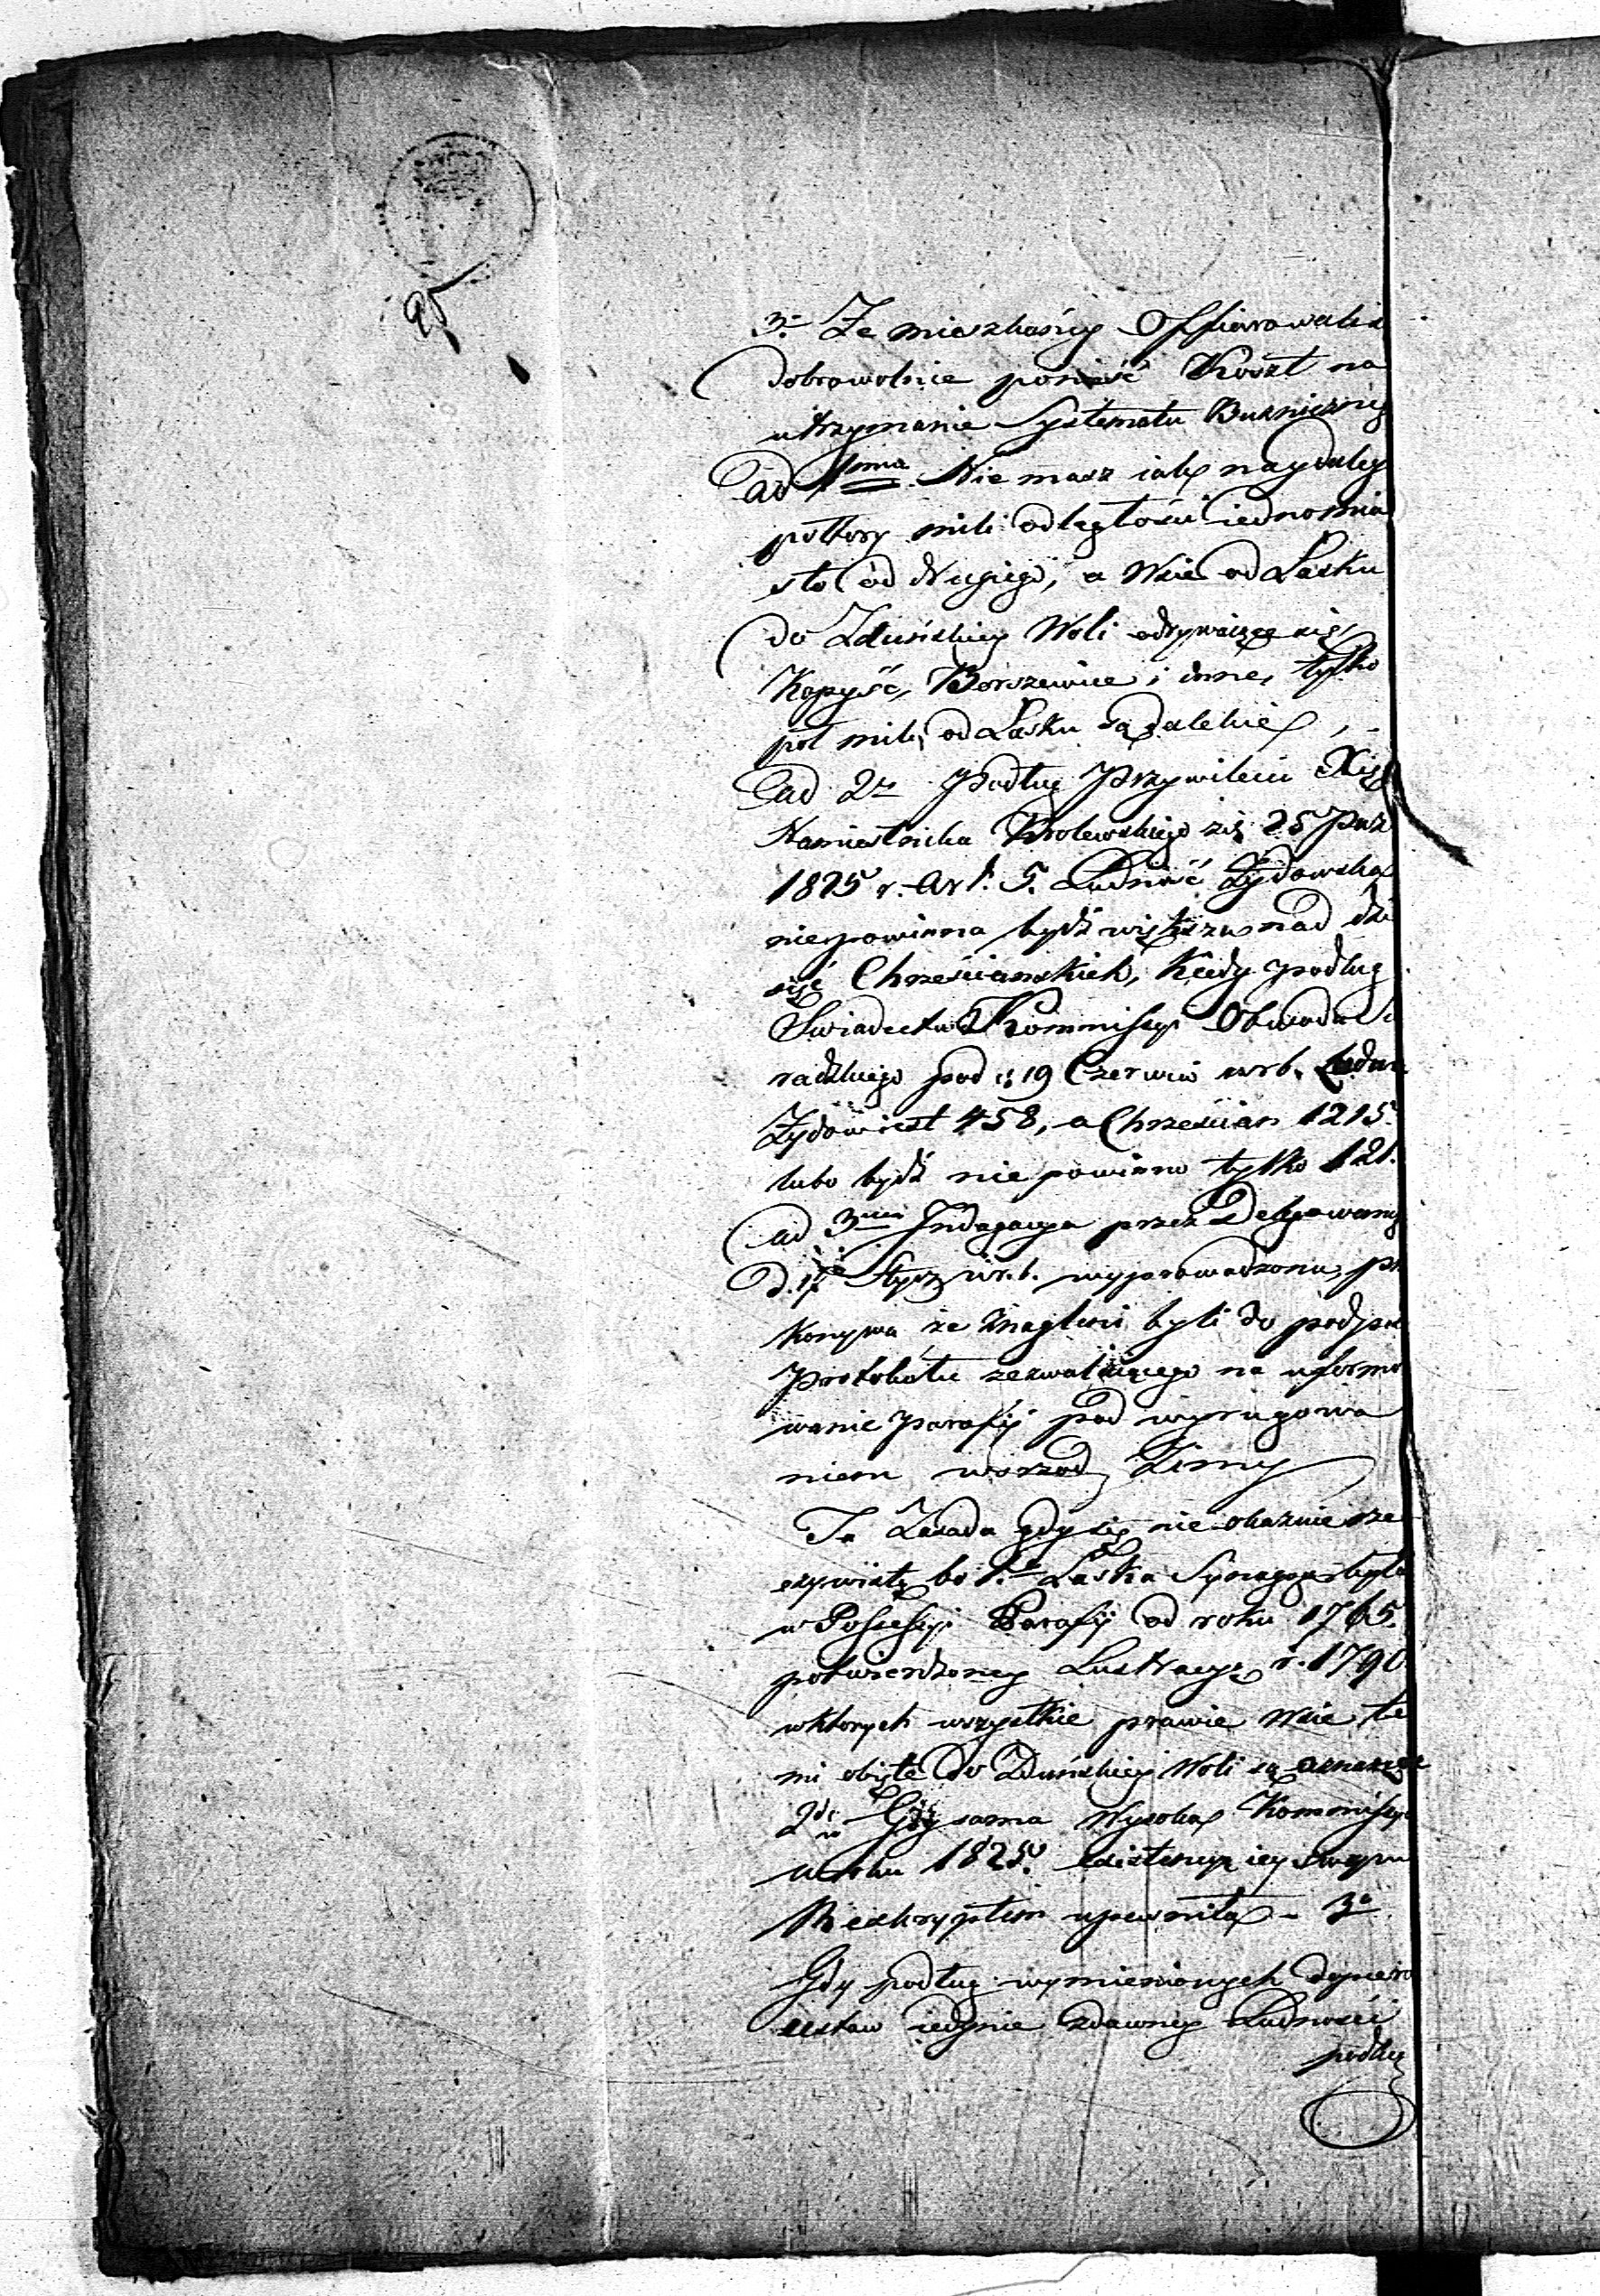 3. Ze mieszkańcy Offiarowali
dobrowolnie ponieść Koszt na
utrzymanie Systematu Bużnicznég
ad 1mo Nie masz iak naydaley
połtory mili odległości iedno mia
sto od drugiego, a Wsie od Łasku
do Zduńskiey Woli odrywaiące się
Kopyść, Borszewice i inne, tylko
poł mili od Łasku są dalekie,
ad 2do Podług Przywileiu Xię
Namiestnika Krolewskiego z d. 25 Paz
1825 r. Art. 5. Ludność Żydowska
niepowinna bydź większa nad dzi
sięć Chrześcianskich, Kiedy podług
Swiadectwa Kommissyi Obwodu Si
radzkiego pod d. 19 Czerwca w r. b.
Żydów iest 458, a Chrześcian 1215
lubo bydź nie powinno tylko 121.
ad 3um Indagacya przez Delegowaneg
d. 17 Stycz w r. b. wyprowadzona, prze
konywa że znagleni byli do podpis
Protokołu zezwalaiącego na uformo
wanie Parafij pod wyrugowa
niem wsrzod Zimy
Ta Zasada gdy się nie okazuie rze
czywistą bo 1. Łaska Synagoga była
w Possessyi Parafij od roku 1765.
potwierdzoney Lustracyą r. 1790
w ktorych wszystkie prawie Wsie te
mi obięte do Zduńskiey Woli są
2do Gdy sama Wysoka Kommissya
w roku 1825. existencyą iey swoym
Reskryptem upewniła – 3o
Gdy podług wymienionych dopiero
ustaw iedynie zdawney Ludności
podług